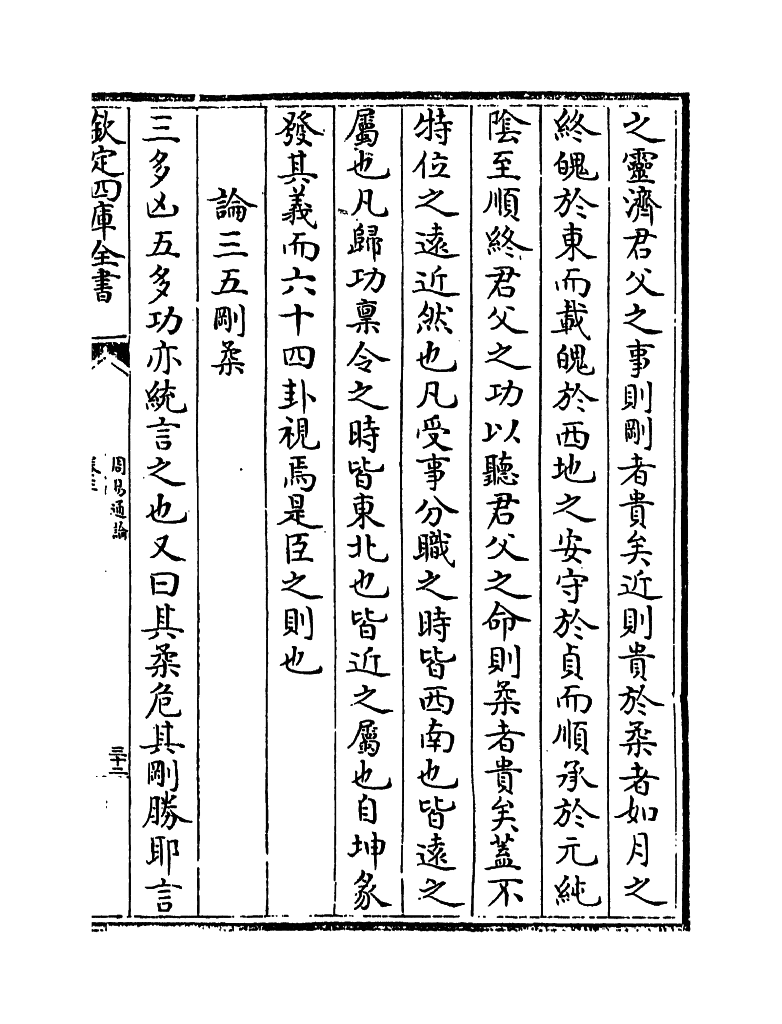 之靈濟君父之事則剛者貴矣近則貴於柔者如月之
終魄於東而載魄於西地之安守於貞而順承於元純
陰至順終君父之功以聽君父之命則柔者貴矣蓋不
特位之遠近然也凡受事分職之時皆西南也皆遠之
屬也凡歸功稟令之時皆東北也皆近之屬也自坤彖
發其義而六十四卦視焉是臣之則也
論三五剛柔
三多凶五多功亦統言之也又曰其柔危其剛勝耶言
欽定四庫全書
周易通論
三十二